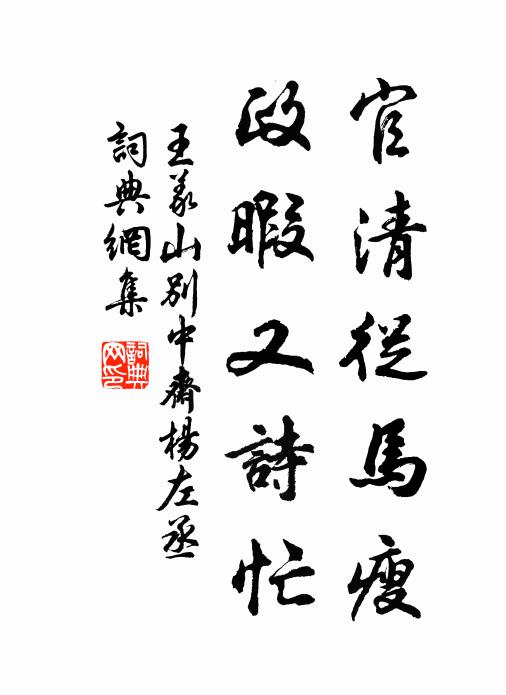 官清從馬瘦
政暇又詩忙
王義山別中齋楊左丞
詞典網集
詞典網印